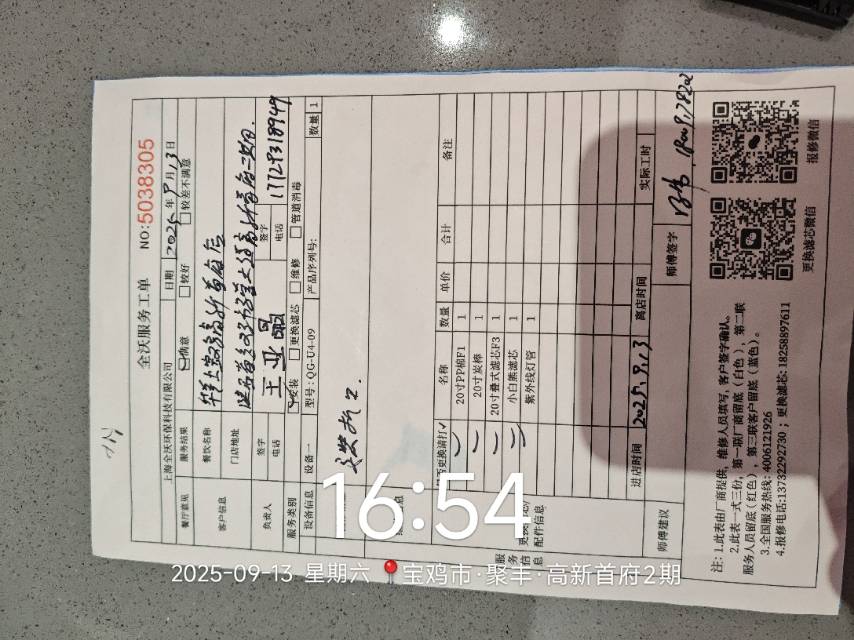 全沃服务工单 NO:5038305
上海全沃环保科技有限公司 日期 2025年9月13日
餐厅意见 服务结果 满意 较好 较差不满意
客户信息 餐饮名称
门店地址
负责人 签字 王亚 签字
电话 电话 17729318949
服务类别 安装 更换滤芯 维修 管道消毒
设备信息 设备一 型号:QG-U4-09 产品序列号: 数量 1
名称 数量 单价 合计 备注
20寸PP棉F1 1
20寸炭棒 1
20寸叠式滤芯F3 1
小白熊滤芯 1
紫外线灯管 1
配件信息
进店时间 2025.9.13 离店时间 实际工时
师傅建议 师傅签字
注: 1.此表由厂商提供, 维修人员填写, 客户签字确认。
2.此表一式三份, 第一联厂商留底(白色), 第二联
服务人员留底(红色), 第三联客户留底(蓝色)。
3.全国服务热线: 4006121926
4.报修电话:13732292730 ; 更换滤芯: 18258897611
更换滤芯微信 报修微信
16:54
2025-09-13 星期六 宝鸡市·聚丰·高新首府2期